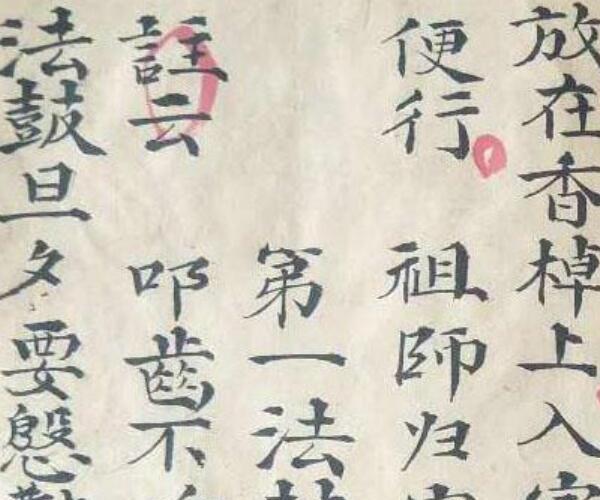 放在香棹上入
便行 祖師归
第一法
註云 叩齒不
法鼓旦夕要慇